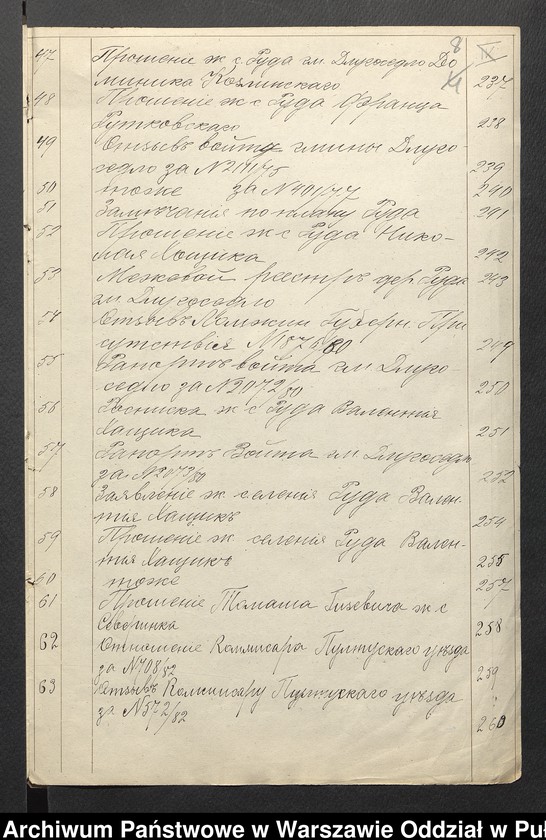 8
IX
47 Прошеніе ж. с. Руда гм. Длугоседло До-
миника Козминскаго 237
48 Прошеніе ж. с. Руда Франца
Рутковскаго 238
49 Отзывъ войту гмины Длуго-
седло за №2191/75 239
50 тоже за №401/77 240
51 Замѣчанія по плану Руда 241
52 Прошеніе ж. с. Руда Нико-
лая Лощика 242
53 Межевой реестръ дер. Руда 243
гм. Длугоседло
54 Отзывъ Ломжин. Губерн. При
сутствія №1875/80 249
55 Рапортъ войта гм. Длуго
седло за №2072/80 250
56 Росписка ж. с. Руда Валентія
Лащика 251
57 Рапортъ Войта гм. Длугоседло
за №2073/80 252
58 Заявленіе ж. селенія Руда Вален-
тія Лащикъ 254
59 Прошеніе ж. селенія Руда Вален-
тія Лащикъ 255
60 тоже 257
61 Прошеніе Томаша Гизевича ж. с.
Северинка 258
62 Отношеніе Коммисара Пултускаго уѣзда
за №708/82 259
63 Отзывъ Коммисару Пултускаго уѣзда
за №572/82 260
Archiwum Państwowe w Warszawie Oddział w Pu